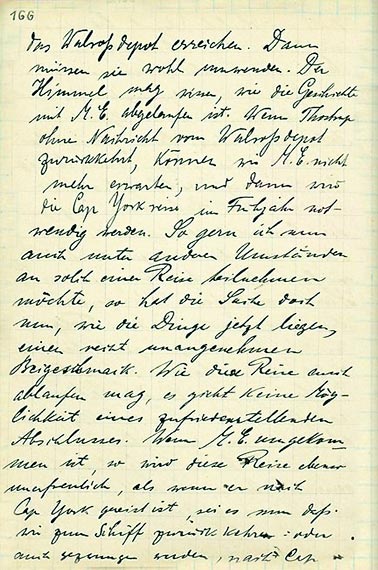 166
das Walroßdepot erreichen. Dann
müssen sie wohl umwenden. Der
Himmel mag wissen, wie die Geschichte
mit M.E. abgelaufen ist. Wenn Thostrup
ohne Nachricht vom Walroßdepot
zurückkehrt, können wir M.E. nicht
mehr erwarten, und dann wird
die Cap Yorkreise im Frühjahr not-
wendig werden. So gern ich nun
auch unter anderen Umständen
an solch einer Reise teilnehmen
möchte, so hat die Sache doch
nun, wie die Dinge jetzt liegen,
einen recht unangenehmen
Beigeschmack. Wie diese Reise auch
ablaufen mag, es giebt keine Mög-
lichkeit eines zufriedenstellenden
Abschlusses. Wenn M.E. umgekom-
men ist, so wird diese Reise ebenso
unerfreulich, als wenn er nach
Cap York gereist ist, sei es nun daß
wir zum Schiff zurückkehren oder
auch gezwungen werden, nach Cap